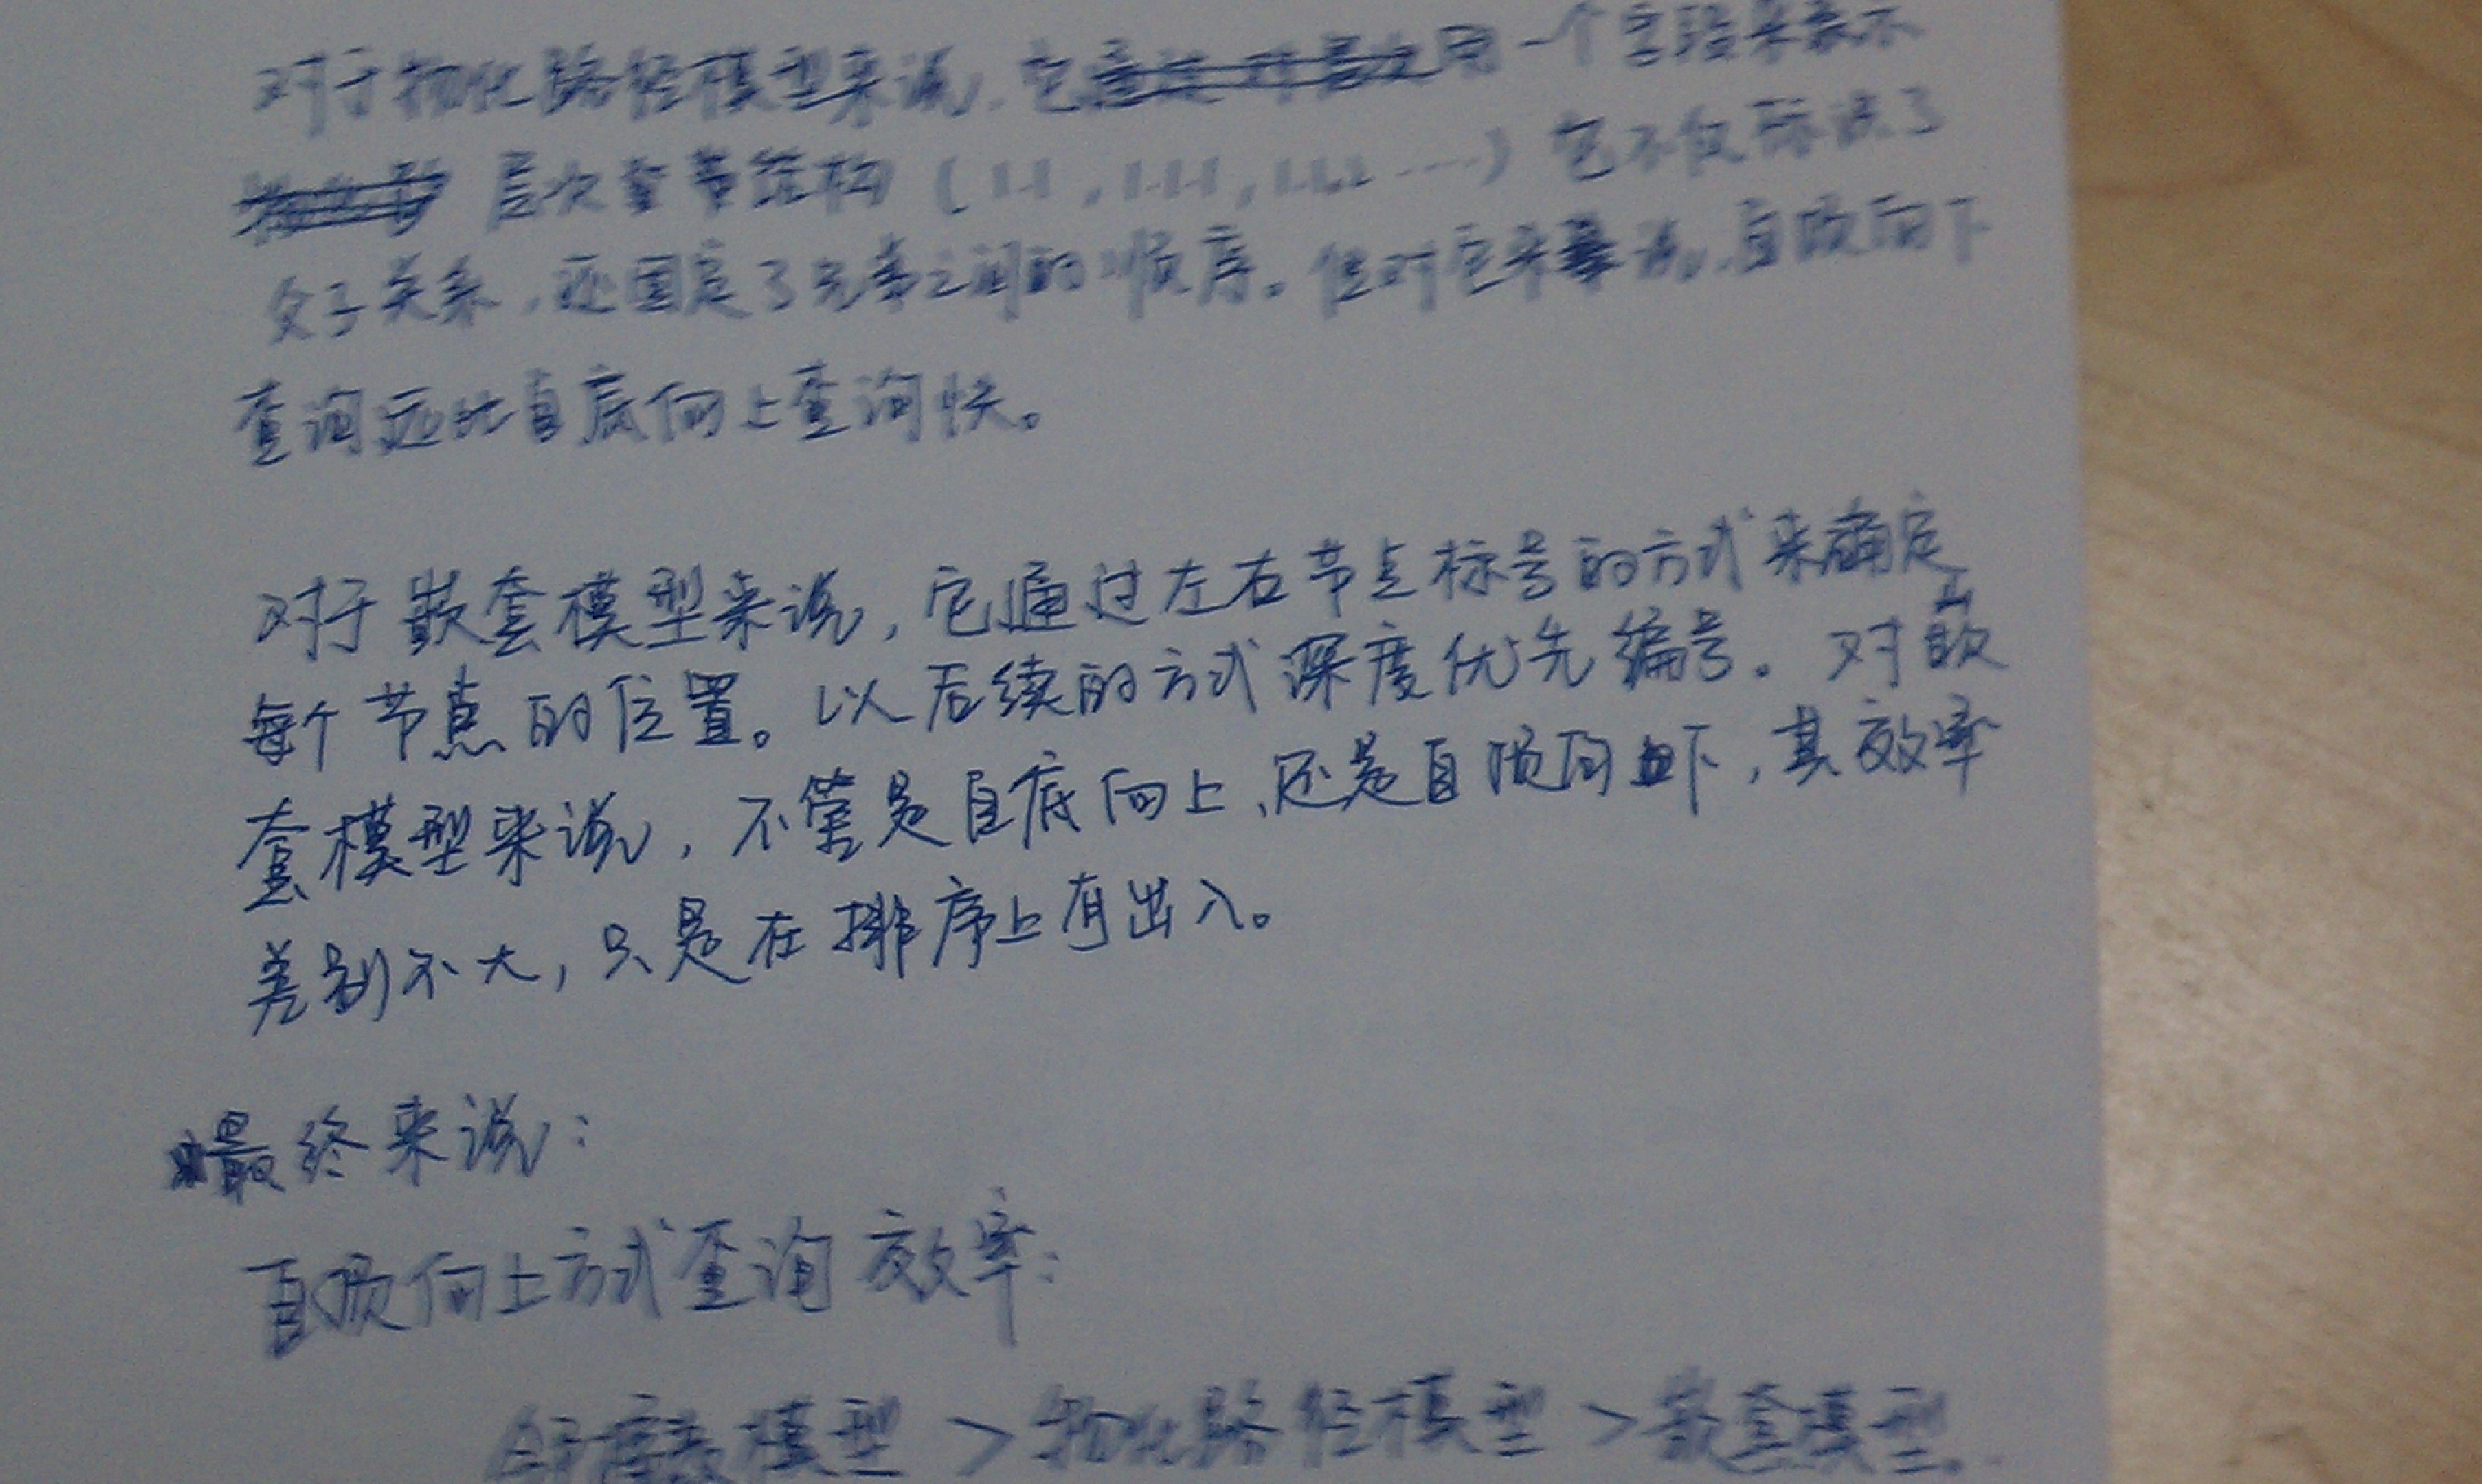 对于物化路径模型来说,它用一个字段来表示
层次章节结构(1.1,1.1.1,1.1.2……)它不仅标识了
父子关系,还固定了兄弟之间的顺序。但对它来说,自顶向下
查询远比自底向上查询快。
对于嵌套模型来说,它通过左右节点标号的方式来确定
每个节点的位置。以后续的方式深度优先编号。对嵌
套模型来说,不管是自底向上,还是自顶向下,其效率
差别不大,只是在排序上有出入。
最终来说:
自顶向上方式查询效率:
模型>物化路径模型>嵌套模型。